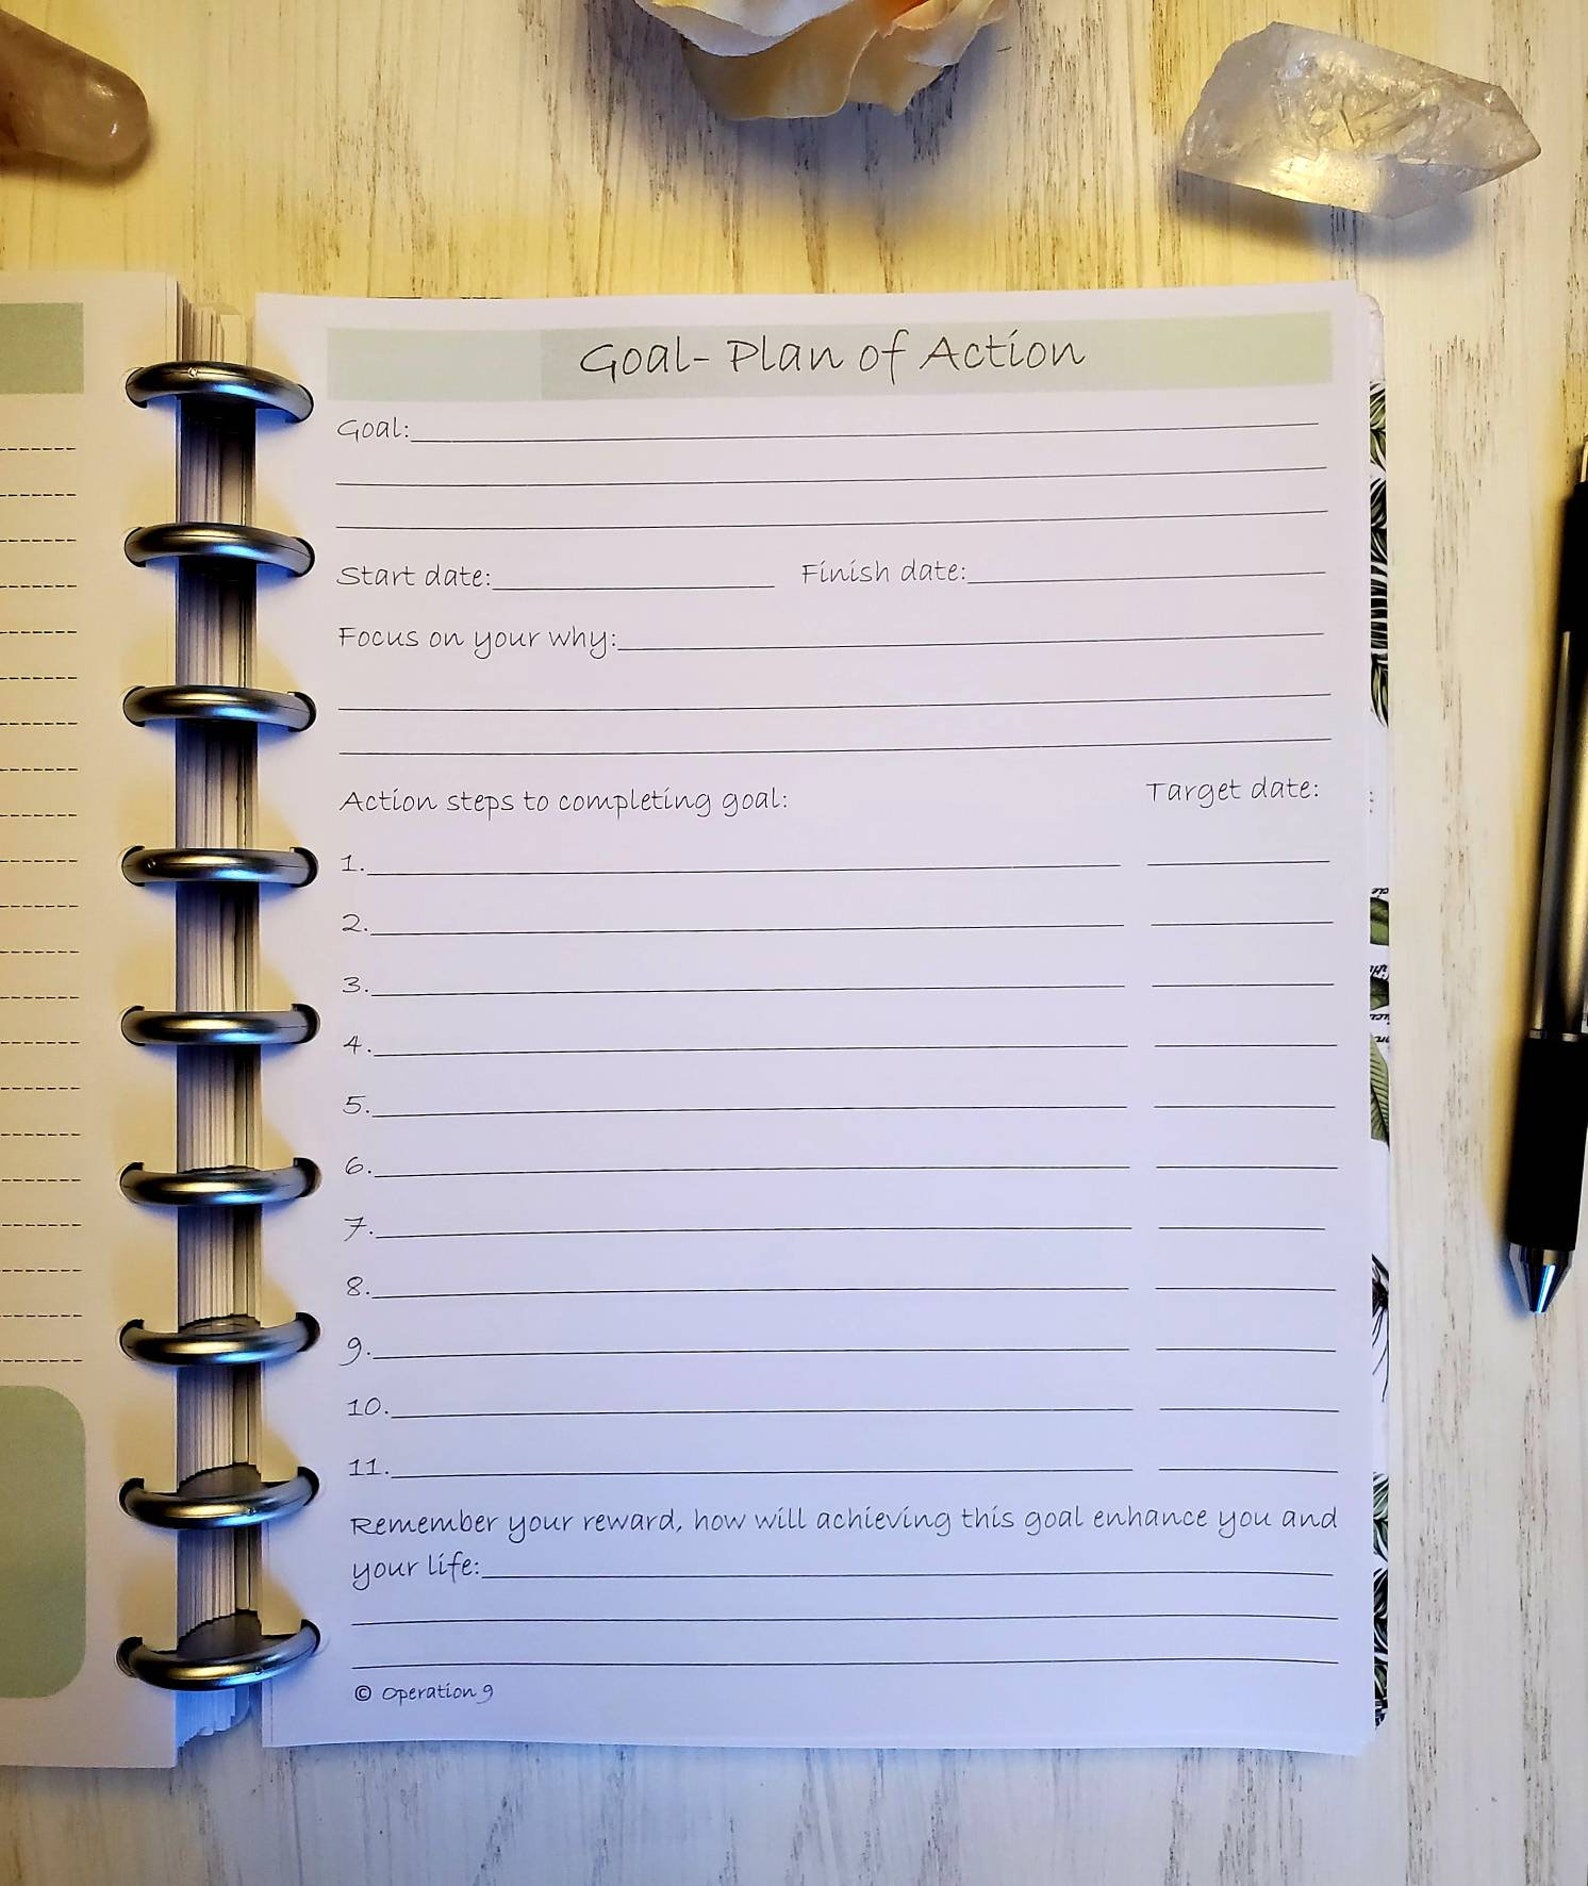 Goal- Plan of Action
Goal:
Start date: Finish date:
Focus on your why:
Action steps to completing goal: Target date:
1.
2.
3.
4.
5.
6.
7.
8.
9.
10.
11.
Remember your reward, how will achieving this goal enhance you and
your life:
© Operation 9